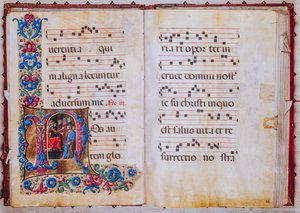 uerentia qui
maligna locuntur
aduersum me. Fe. iii.
Nos au
tem glo
ria ri opor tet in
cruce domini nost
ie su christi in quo
est salus uita et re
surrectio no stra